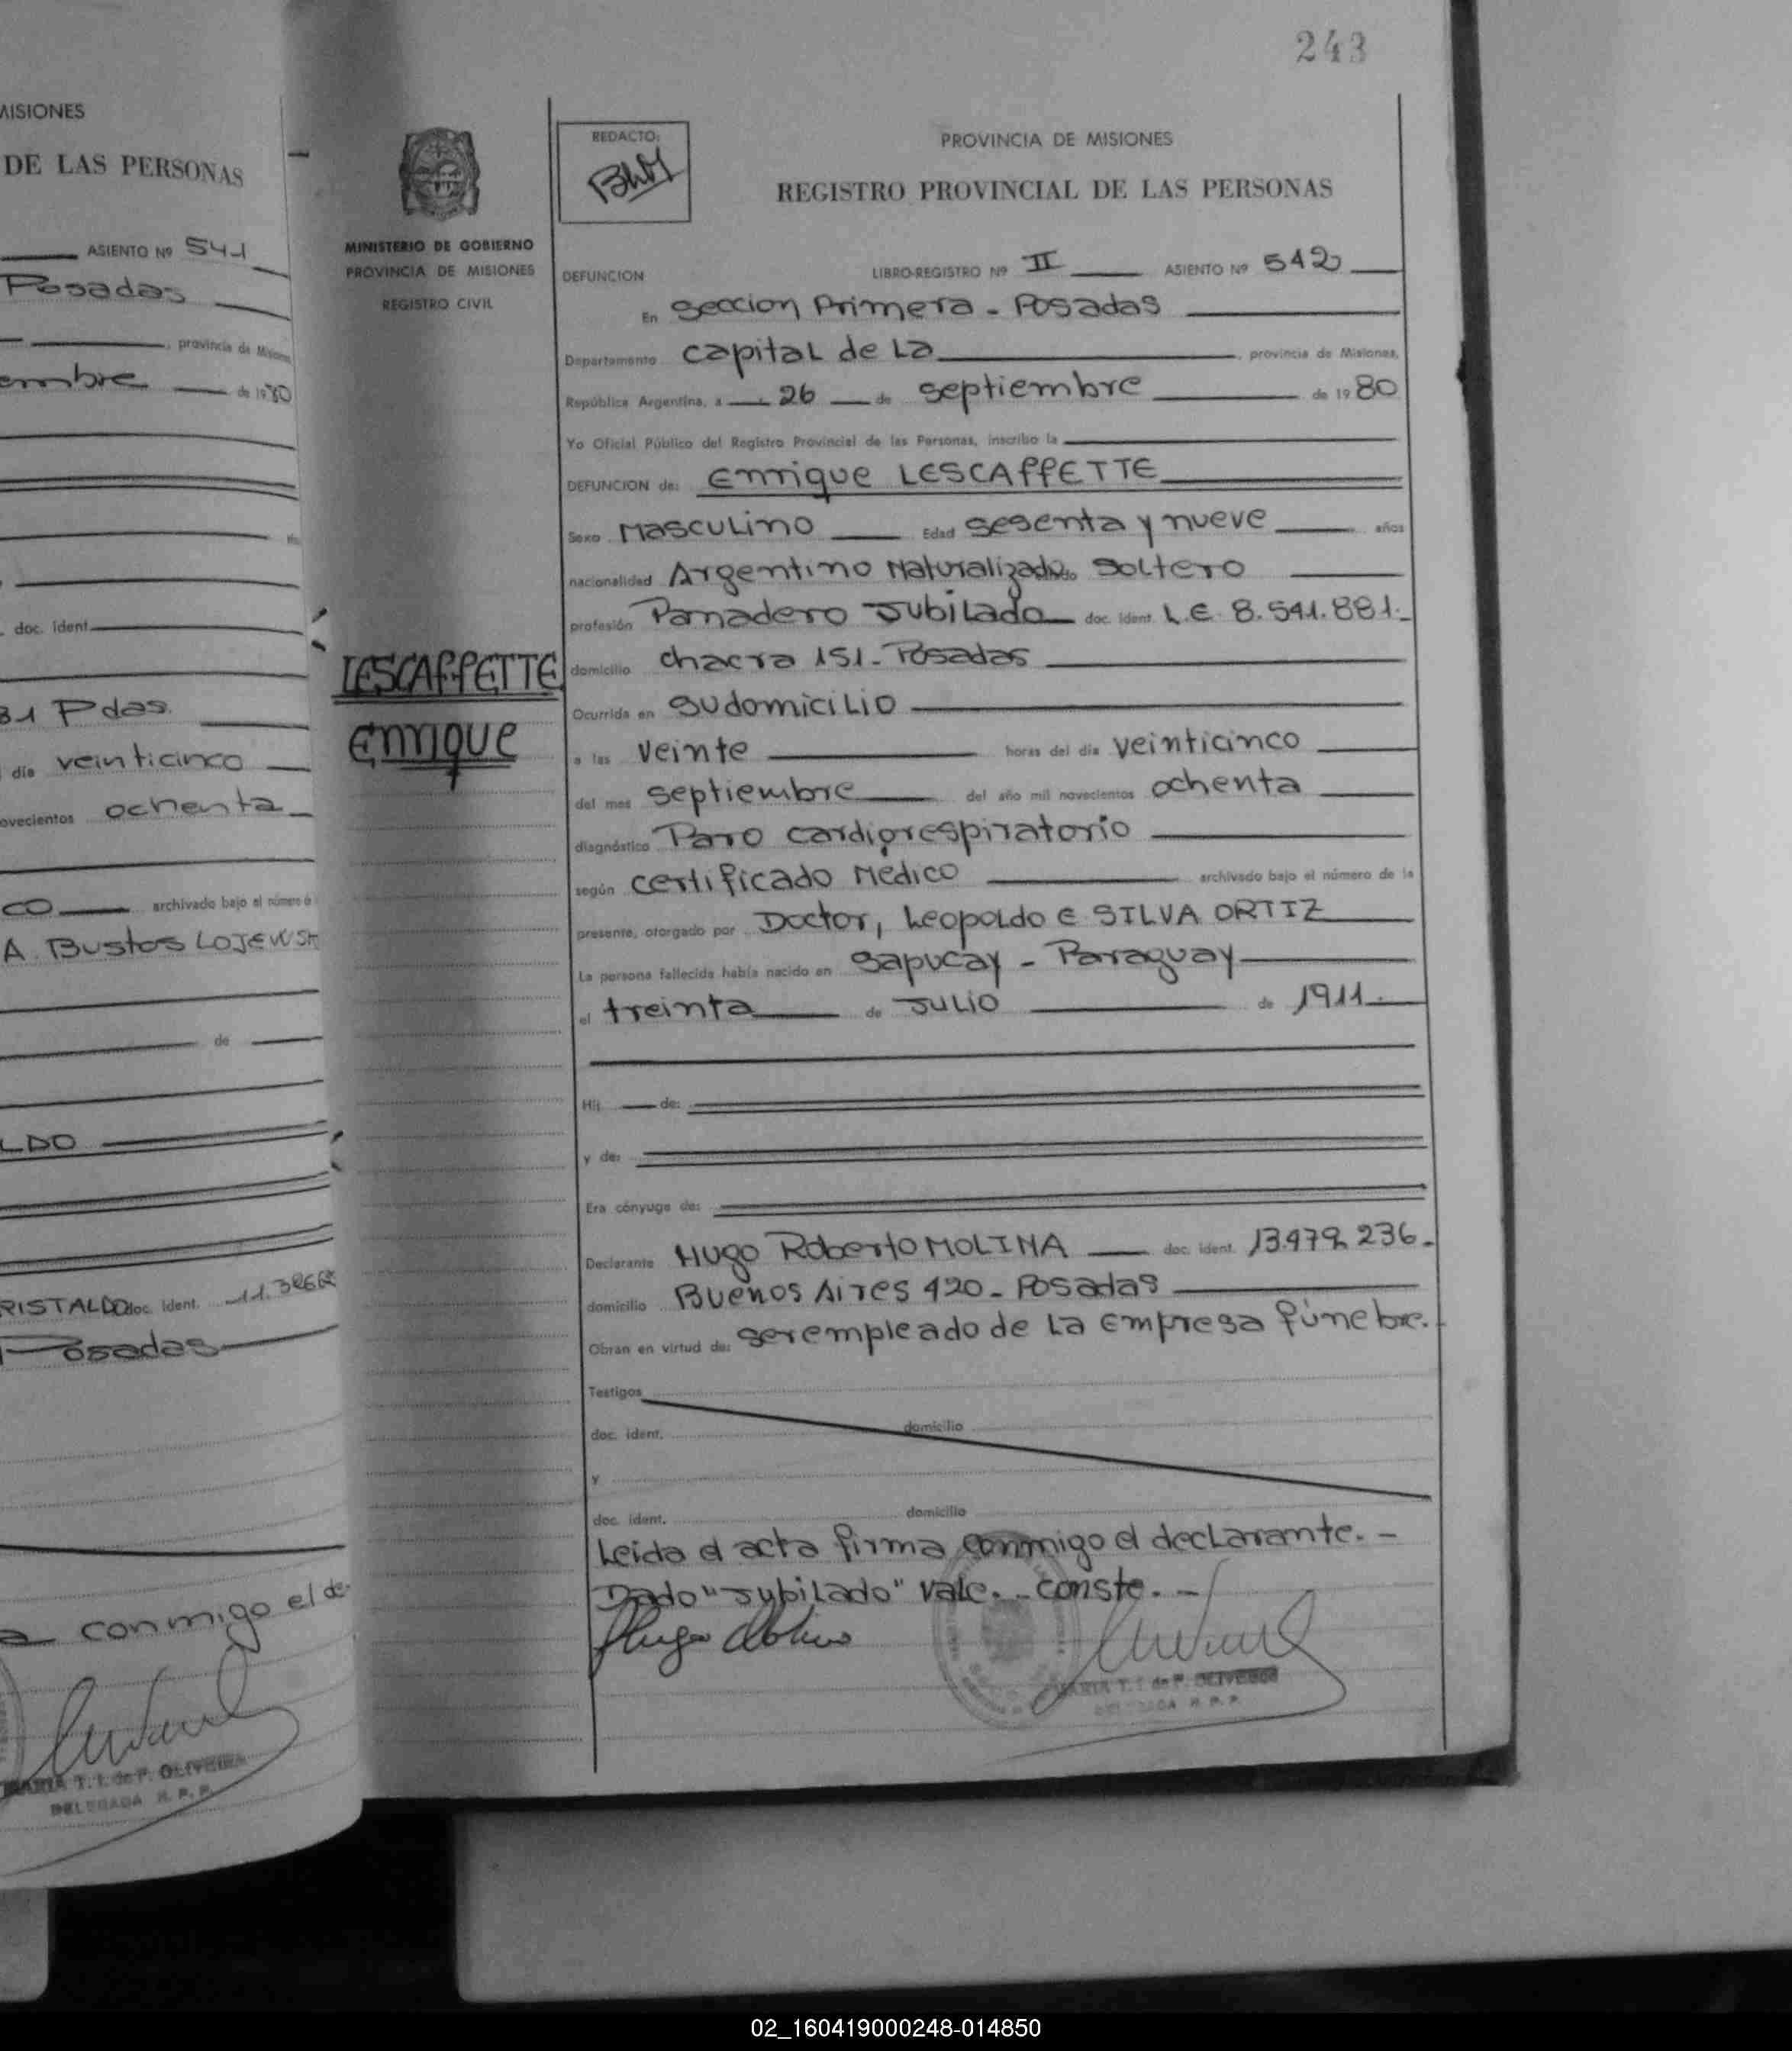 243
MISIONES
DE LAS PERSONAS
ASIENTO Nº 541
Posadas
, provincia de Misiones,
embre de 1980
doc. ident.
81 Pdas.
día veinticinco
novecientos ochenta
co archivado bajo el número
A. Bustos LOJEWSK
de
LDO
RISTALDO doc. ident. 11.386
Posadas
a conmigo el de
MARIA T. I. de P. OLIVEIRA
DELEGADA R. P. P.
MINISTERIO DE GOBIERNO
PROVINCIA DE MISIONES
REGISTRO CIVIL
LESCAFFETTE
Enrique
REDACTO:
PROVINCIA DE MISIONES
REGISTRO PROVINCIAL DE LAS PERSONAS
DEFUNCION LIBRO-REGISTRO Nº II ASIENTO Nº 542
En Seccion Primera - Posadas
Departamento Capital de La , provincia de Misiones,
República Argentina, a 26 de septiembre de 1980
Yo Oficial Público del Registro Provincial de las Personas, inscribo la
DEFUNCION de: Enrique LESCAFFETTE
Sexo Masculino Edad Sesenta y nueve años
nacionalidad Argentino Naturalizado Soltero
profesión Panadero Jubilado doc. ident. L.E 8.541.881.-
domicilio chacra 151 - Posadas
Ocurrida en Su domicilio
a las Veinte horas del día veinticinco
del mes septiembre del año mil novecientos ochenta
diagnóstico Paro cardiorespiratorio
según certificado Médico archivado bajo el número de la
presente, otorgado por Doctor, Leopoldo E SILVA ORTIZ
La persona fallecida había nacido en Sapucay - Paraguay
el treinta de Julio de 1911.
Hij de:
y de:
Era cónyuge de:
Declarante Hugo Roberto MOLINA doc. ident. 13.479.236.-
domicilio Buenos Aires 420 - Posadas
Obran en virtud de: ser empleado de la Empresa fúnebre.-
Testigos
doc. ident. domicilio
y
doc. ident. domicilio
Leida el acta firma conmigo el declarante. -
Dado "Jubilado" vale. - conste. -
MARIA T. I. de P. OLIVEIRA
DELEGADA R. P. P.
02_160419000248-014850